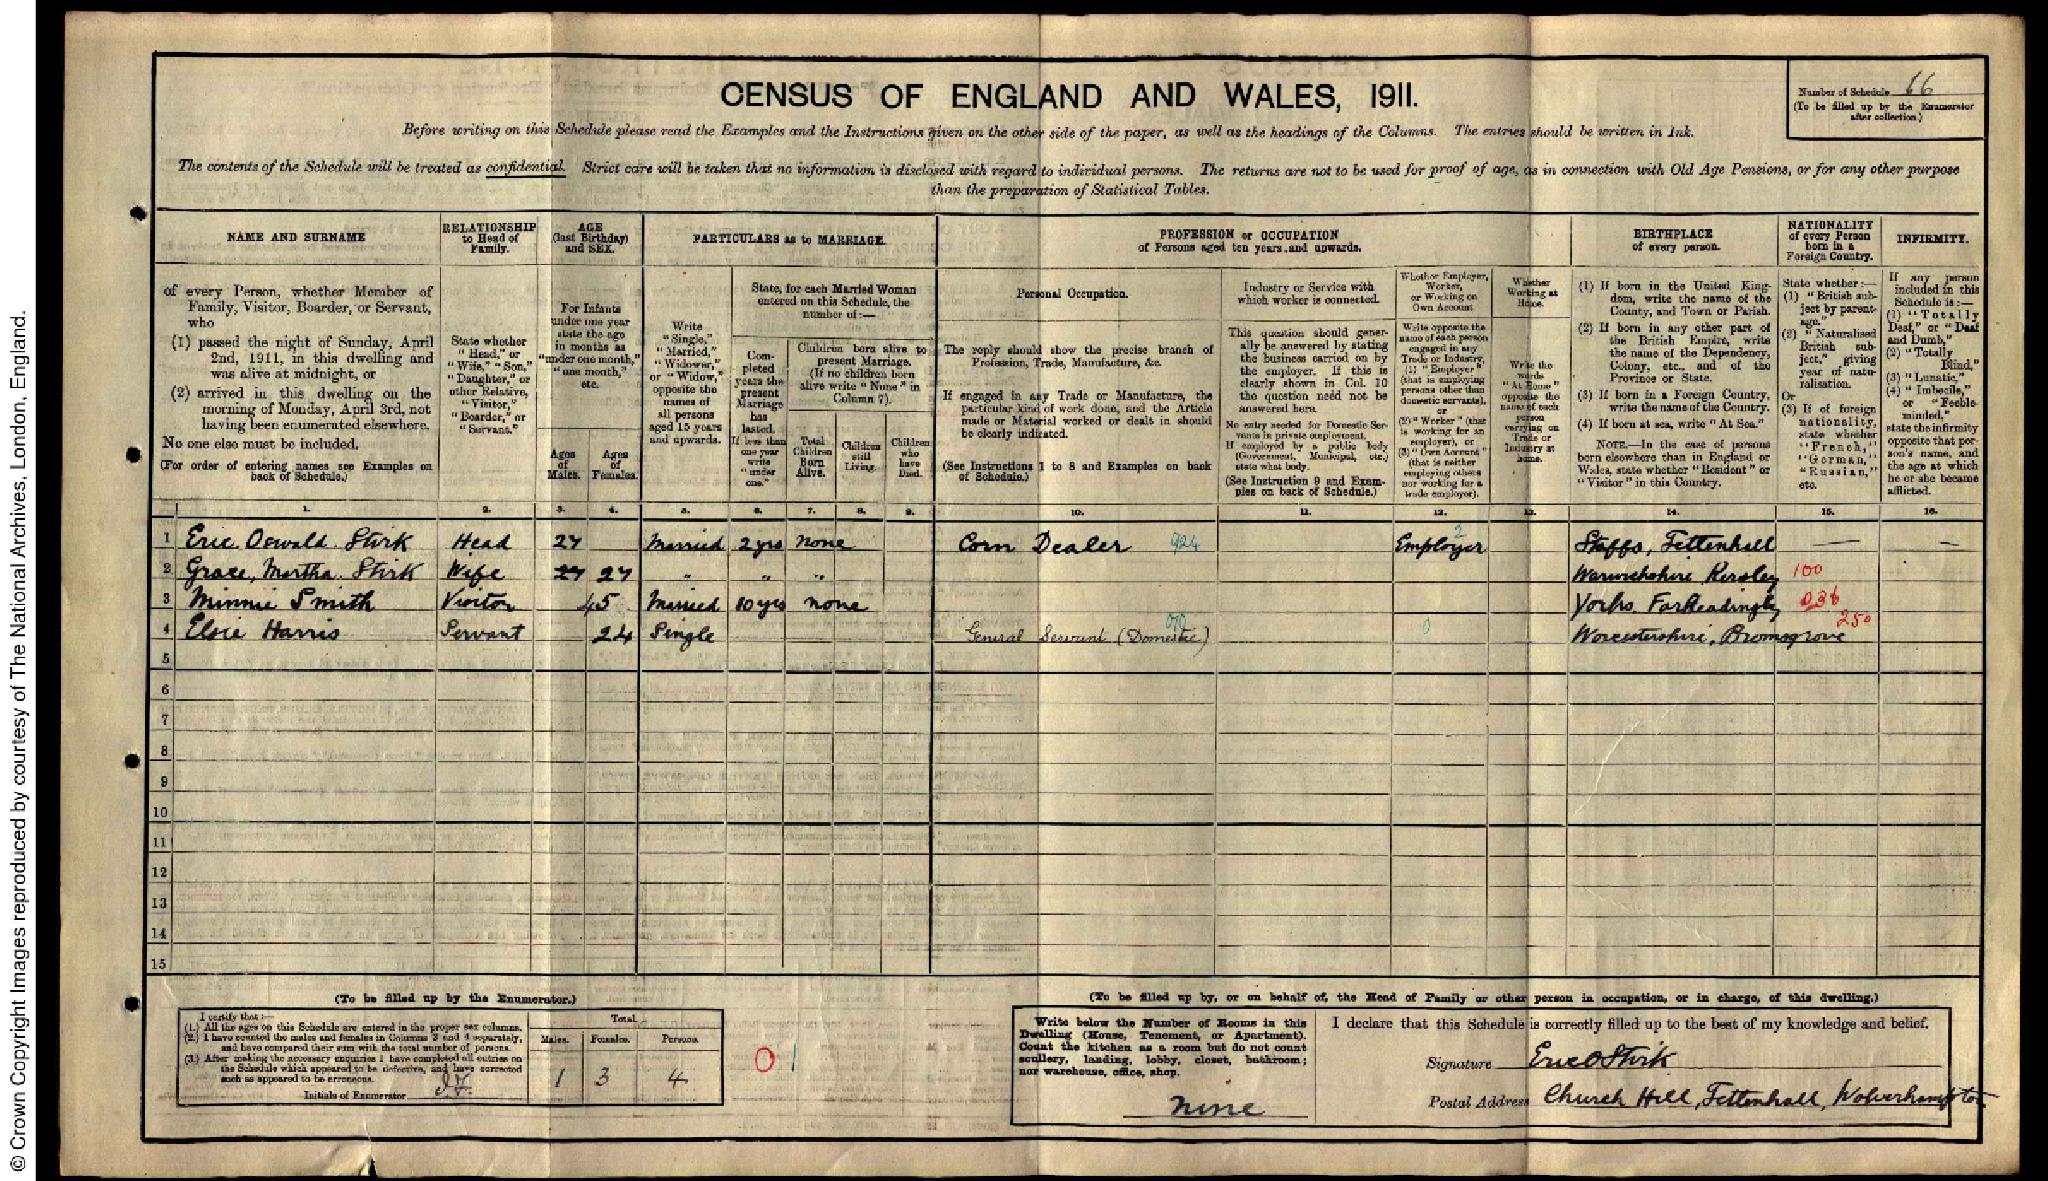 CENSUS OF ENGLAND AND WALES, 1911.
Number of Schedule 66
(To be filled up by the Enumerator
after collection.)
Before writing on this Schedule please read the Examples and the Instructions given on the other side of the paper, as well as the headings of the Columns. The entries should be written in Ink.
The contents of the Schedule will be treated as confidential. Strict care will be taken that no information is disclosed with regard to individual persons. The returns are not to be used for proof of age, as in connection with Old Age Pensions, or for any other purpose
than the preparation of Statistical Tables.
NAME AND SURNAME
of every Person, whether Member of
Family, Visitor, Boarder, or Servant,
who
(1) passed the night of Sunday, April
2nd, 1911, in this dwelling and
was alive at midnight, or
(2) arrived in this dwelling on the
morning of Monday, April 3rd, not
having been enumerated elsewhere.
No one else must be included.
(For order of entering names see Examples on
back of Schedule.)
RELATIONSHIP
to Head of
Family.
State whether
"Head," or
"Wife," "Son,"
"Daughter," or
other Relative,
"Visitor,"
"Boarder," or
"Servant."
AGE
(last Birthday)
and SEX.
For Infants
under one year
state the age
in months as
"under one month,"
"one month,"
etc.
Ages
of
Males.
Ages
of
Females.
PARTICULARS as to MARRIAGE.
Write
"Single,"
"Married,"
"Widower,"
or "Widow,"
opposite the
names of
all persons
aged 15 years
and upwards.
State, for each Married Woman
entered on this Schedule, the
number of:—
Com-
pleted
years the
present
Marriage
has
lasted.
If less than
one year
write
"under
one."
Children born alive to
present Marriage.
(If no children born
alive write "None" in
Column 7).
Total
Children
Born
Alive.
Children
still
Living.
Children
who
have
Died.
PROFESSION or OCCUPATION
of Persons aged ten years and upwards.
Personal Occupation.
The reply should show the precise branch of
Profession, Trade, Manufacture, &c.
If engaged in any Trade or Manufacture, the
particular kind of work done, and the Article
made or Material worked or dealt in should
be clearly indicated.
(See Instructions 1 to 8 and Examples on back
of Schedule.)
Industry or Service with
which worker is connected.
This question should gener-
ally be answered by stating
the business carried on by
the employer. If this is
clearly shown in Col. 10
the question need not be
answered here.
No entry needed for Domestic Ser-
vants in private employment.
If employed by a public body
(Government, Municipal, etc.)
state what body.
(See Instruction 9 and Exam-
ples on back of Schedule.)
Whether Employer,
Worker,
or Working on
Own Account
Write opposite the
name of each person
engaged in any
Trade or Industry,
(1) "Employer"
(that is employing
persons other than
domestic servants),
or
(2) "Worker" (that
is working for an
employer), or
(3) "Own Account"
(that is neither
employing others
nor working for a
trade employer).
Whether
Working at
Home.
Write the
words
"At Home"
opposite the
name of each
person
carrying on
Trade or
Industry at
home.
BIRTHPLACE
of every person.
(1) If born in the United King-
dom, write the name of the
County, and Town or Parish.
(2) If born in any other part of
the British Empire, write
the name of the Dependency,
Colony, etc., and of the
Province or State.
(3) If born in a Foreign Country,
write the name of the Country.
(4) If born at sea, write "At Sea."
NOTE.—In the case of persons
born elsewhere than in England or
Wales, state whether "Resident" or
"Visitor" in this Country.
NATIONALITY
of every Person
born in a
Foreign Country.
State whether:—
(1) "British sub-
ject by parent-
age."
(2) "Naturalised
British sub-
ject," giving
year of natu-
ralisation.
Or
(3) If of foreign
nationality,
state whether
"French,"
"German,"
"Russian,"
etc.
INFIRMITY.
If any person
included in this
Schedule is:—
(1) "Totally
Deaf," or "Deaf
and Dumb,"
(2) "Totally
Blind,"
(3) "Lunatic,"
(4) "Imbecile,"
or "Feeble-
minded,"
state the infirmity
opposite that per-
son's name, and
the age at which
he or she became
afflicted.
1. 2. 3. 4. 5. 6. 7. 8. 9. 10. 11. 12. 13. 14. 15. 16.
1 Eric Oswald Stirk Head 27 Married 2 yrs none Corn Dealer 924 Employer 2 Staffs, Tettenhall — —
2 Grace Martha Stirk Wife 27 27 " " " Warwickshire Keresley 100
3 Minnie Smith Visitor 45 Married 10 yrs none Yorks, Far Headingly 236
4 Elsie Harris Servant 24 Single General Servant (Domestic) 070 0 Worcestershire, Bromsgrove 250
5
6
7
8
9
10
11
12
13
14
15
(To be filled up by the Enumerator.)
I certify that:—
(1.) All the ages on this Schedule are entered in the proper sex columns.
(2.) I have counted the males and females in Columns 3 and 4 separately,
and have compared their sum with the total number of persons.
(3.) After making the necessary enquiries I have completed all entries on
the Schedule which appeared to be defective, and have corrected
such as appeared to be erroneous.
Initials of Enumerator
Total.
Males. Females. Persons.
1 3 4
0 1
(To be filled up by, or on behalf of, the Head of Family or other person in occupation, or in charge, of this dwelling.)
Write below the Number of Rooms in this
Dwelling (House, Tenement, or Apartment).
Count the kitchen as a room but do not count
scullery, landing, lobby, closet, bathroom;
nor warehouse, office, shop.
nine
I declare that this Schedule is correctly filled up to the best of my knowledge and belief.
Signature Eric O Stirk
Postal Address Church Hill, Tettenhall, Wolverhampton
© Crown Copyright Images reproduced by courtesy of The National Archives, London, England.